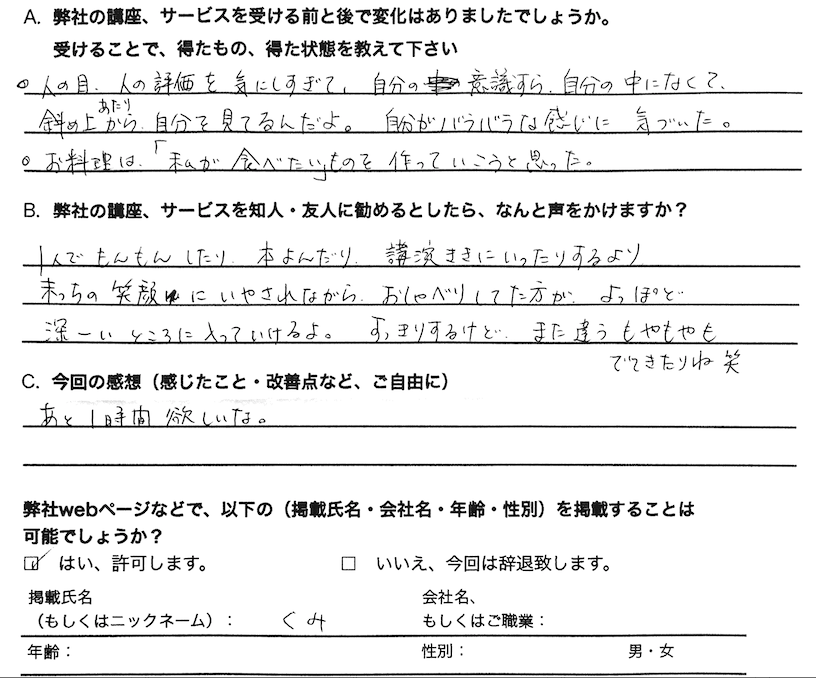 A. 弊社の講座、サービスを受ける前と後で変化はありましたでしょうか。
受けることで、得たもの、得た状態を教えて下さい
○人の目、人の評価を気にしすぎて、自分の意識すら、自分の中になくて、
あたり
斜め上から、自分を見てるんだよ。 自分がバラバラな感じに 気づいた。
○お料理は、「私が食べたい」ものを 作っていこうと思った。
B. 弊社の講座、サービスを知人・友人に勧めるとしたら、なんと声をかけますか？
1人でもんもんしたり、本よんだり、講演ききにいったりするより
まっちの笑顔にいやされながら、おしゃべりしてた方が、よっぽど
深ーいところに入っていけるよ。 すっきりするけど、また違うもやもやも
でてきたりね 笑
C. 今回の感想（感じたこと・改善点など、ご自由に）
あと1時間欲しいな。
弊社webページなどで、以下の（掲載氏名・会社名・年齢・性別）を掲載することは
可能でしょうか？
☑ はい、許可します。 □ いいえ、今回は辞退致します。
掲載氏名 会社名、
（もしくはニックネーム）： くみ もしくはご職業：
年齢： 性別： 男・女